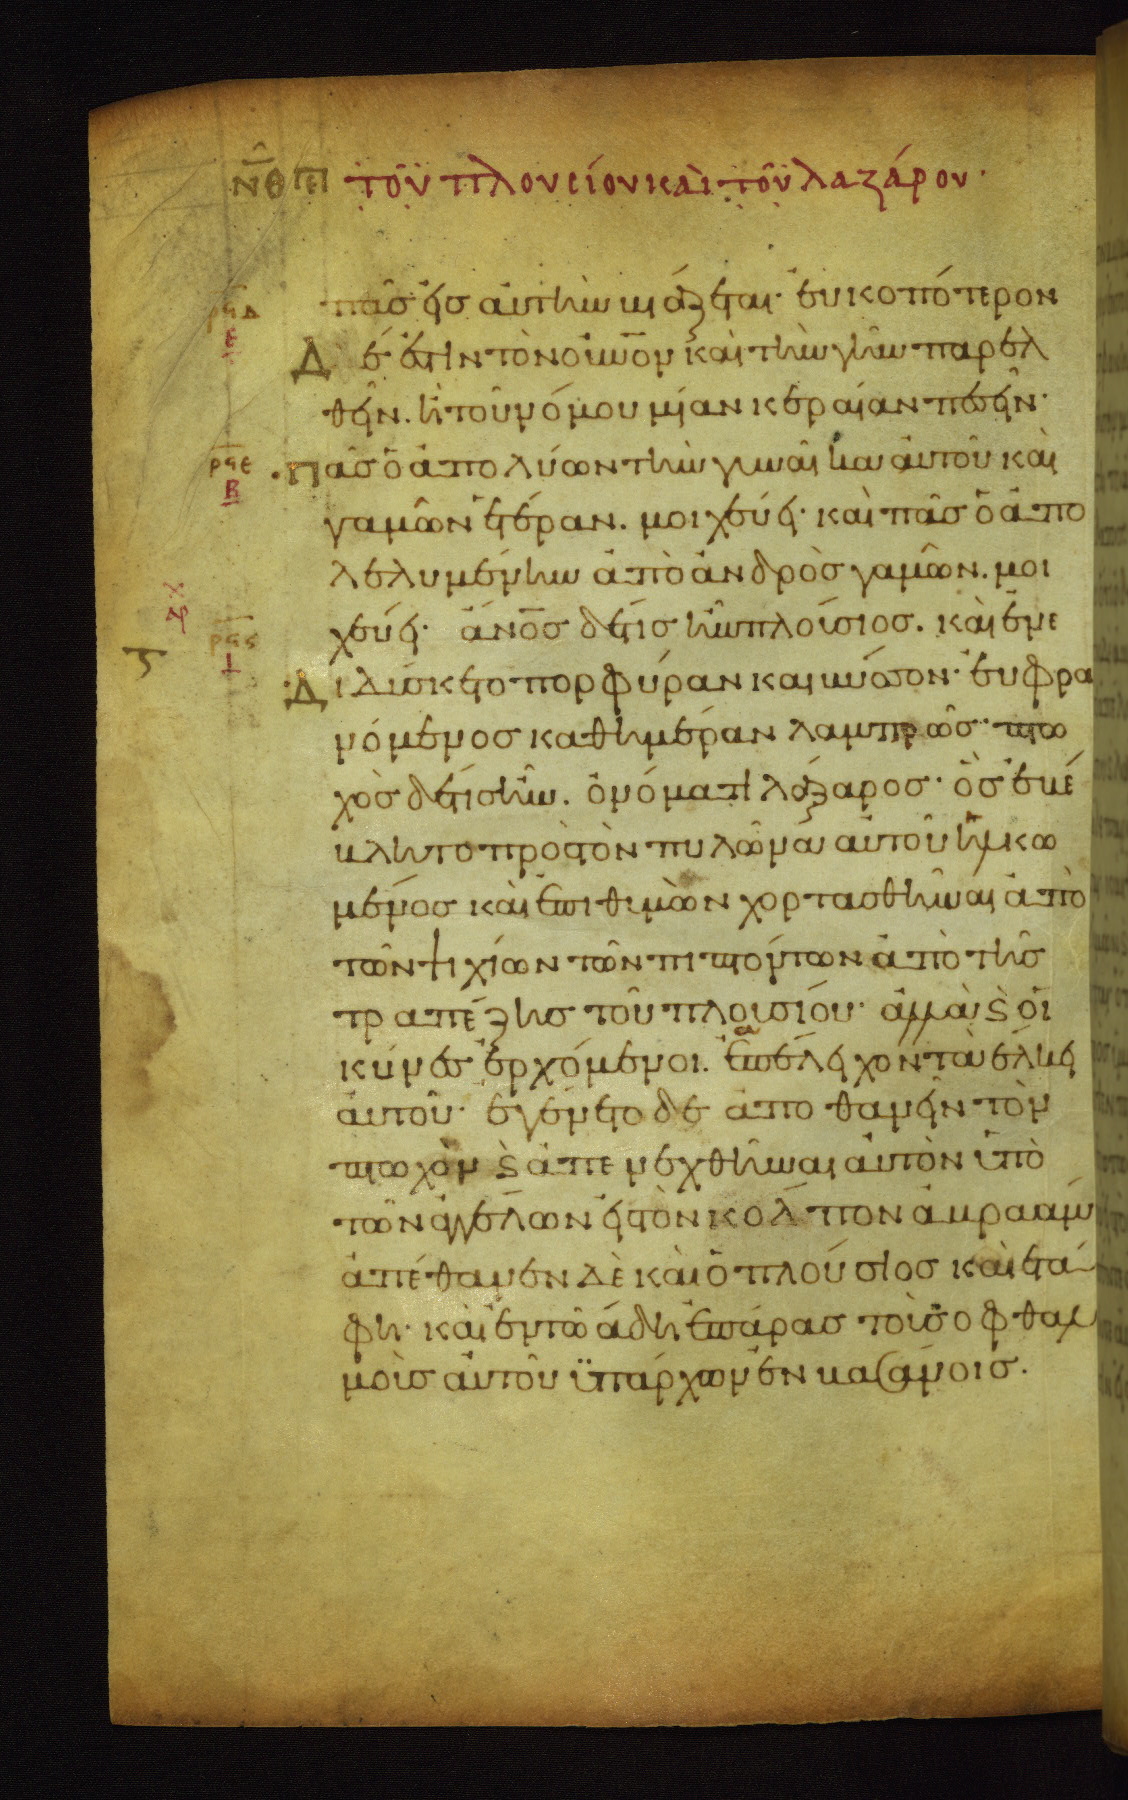 ν̅θ̅ περὶ τοῦ πλουσίου καὶ τοῦ λαζάρου·
ρϟδ
ε
πᾶσ εἰσ αὐτὴν βιάζεται· ἐυκοπότερον
Δέ ἐστιν τὸν οὐνον καὶ τὴν γῆν παρελ
θεῖν. ἢ τοῦ νόμου μίαν κεραίαν πεσεῖν·
ρϟε
β
·Πᾶσ ὁ ἀπολύων τὴν γυναῖκα αὐτοῦ καὶ
γαμῶν ἑτέραν. μοιχεύει· καὶ πᾶσ ὁ ἀπο
λελυμένην ἀπὸ ἀνδρὸσ γαμῶν. μοι
ρϟς
ι
χεύει· ἄνοσ δέ τισ ἦν πλούσιοσ. καὶ ἐνε
·Διδύσκετο πορφύραν καὶ βύσσον· ἐυφραι
νόμενοσ καθημέραν λαμπρῶσ· πτω
χὸσ δέ τισ ἦν. ὀνόματι λάζαροσ· ὃσ ἐβέ
βλητο πρὸσ τὸν πυλῶνα αὐτοῦ ἡλκω
μένοσ καὶ ἐπιθυμῶν χορτασθῆναι ἀπὸ
τῶν ψιχίων τῶν πιπτόντων ἀπὸ τῆσ
τραπέζησ τοῦ πλουσίου· ἀλλὰ ϛ̀ οἱ
κύνεσ ἐρχόμενοι. ἐπέλειχον τὰ ἕλκη
αὐτοῦ· ἐγένετο δὲ ἀποθανεῖν τὸν
πτωχὸν ϛ̀ ἀπενεχθῆναι αὐτὸν ὑπὸ
τῶν ἀγγέλων εἰσ τὸν κόλπον ἀβραάμ
ἀπέθανεν δὲ καὶ ὁ πλούσιοσ καὶ ἐτά
φη· καὶ ἐν τῶ ἅδη ἐπάρασ τοὺσ ὀφθαλ
μοὺσ αὐτοῦ ϋπάρχων ἐν βασάνοισ.